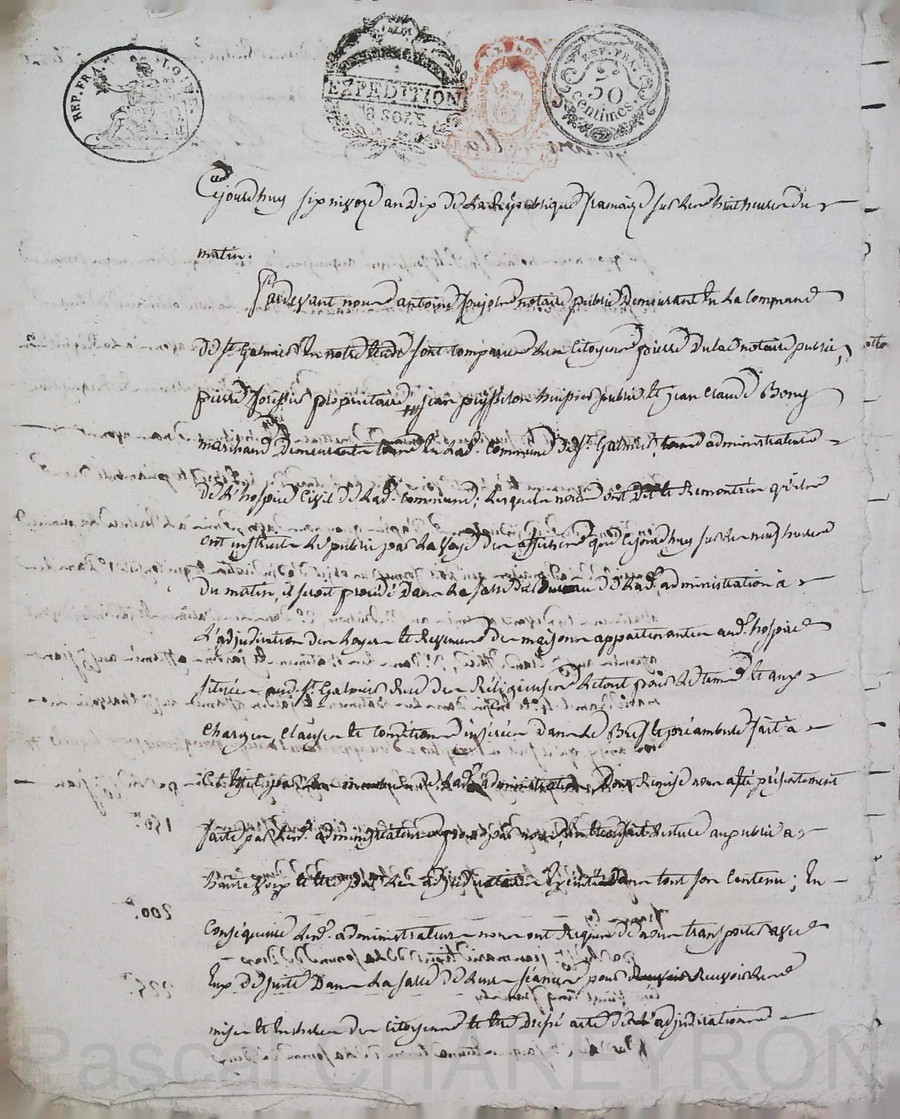 REP. FRA. LOI
EXPEDITION
REP. FRA.
50
centimes.
Cejourdhuy six nivoze an dix de la Republique francaize sur les huit heures du
matin.
Pardevant nous antoine pujol notaire public Demeurant En La Commune
De St. Galmier En notre Etude sont comparus Les Citoyens pierre Dulac notaire public,
pierre proprietaire, jean huissier public Et jean Claude Bony
marchand Demeurants En Lad. commune De St. Galmier, administrateurs
De L'hospice Civil De Lad. commune, Lesquels nous ont dit Et Remontrer qu'ils
ont instruit Le public par La voye des affiches que Cejourdhuy sur Les neuf heures
Du matin, il seroit procédé Dans La salle du bureau De Lad. administration à
L'adjudication des Loyers Et Revenus De maisons appartenantes aud. hospice
situées aud. St. Galmier Rue des Religieuses Le tout pour Le tems Et aux
charges, clauses Et conditions inserées Dans Le Et préambule fait à
Cet Effet par Les membres De Lad. administration, Dont Remise nous a été présentement
faite par Lesd. administrateurs pour par nous, En Etre fait Lecture au public a
haute voix Et par Les adjudicataires Dans tout son Contenu; En
Conséquence Lesd. administrateurs nous ont Requis De nous transporter avec
Eux De suite Dans La salle De Leurs séances pour Recevoir Les
mises Et Encheres des Citoyens Et Etre Dressé acte De L'adjudication
Pascal CHAREYRON